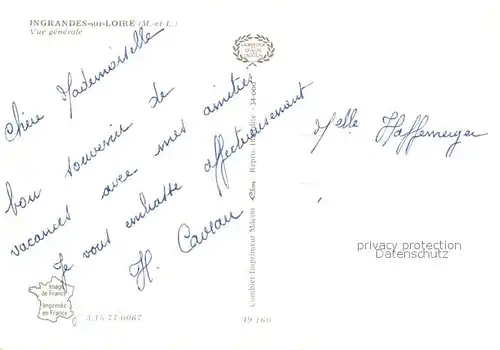 INGRANDES-sur-LOIRE (M.-et-L.)
Vue générale
Chère Mademoiselle
bon souvenir de
vacances avec mes amitiés
Je vous embrasse affectueusement
H.
Combier Imprimeur Mâcon
Repro. Interdite
Melle
privacy protection
Datenschutz
Image
de France
Imprimée
en France
3.15.77.0067
49 160